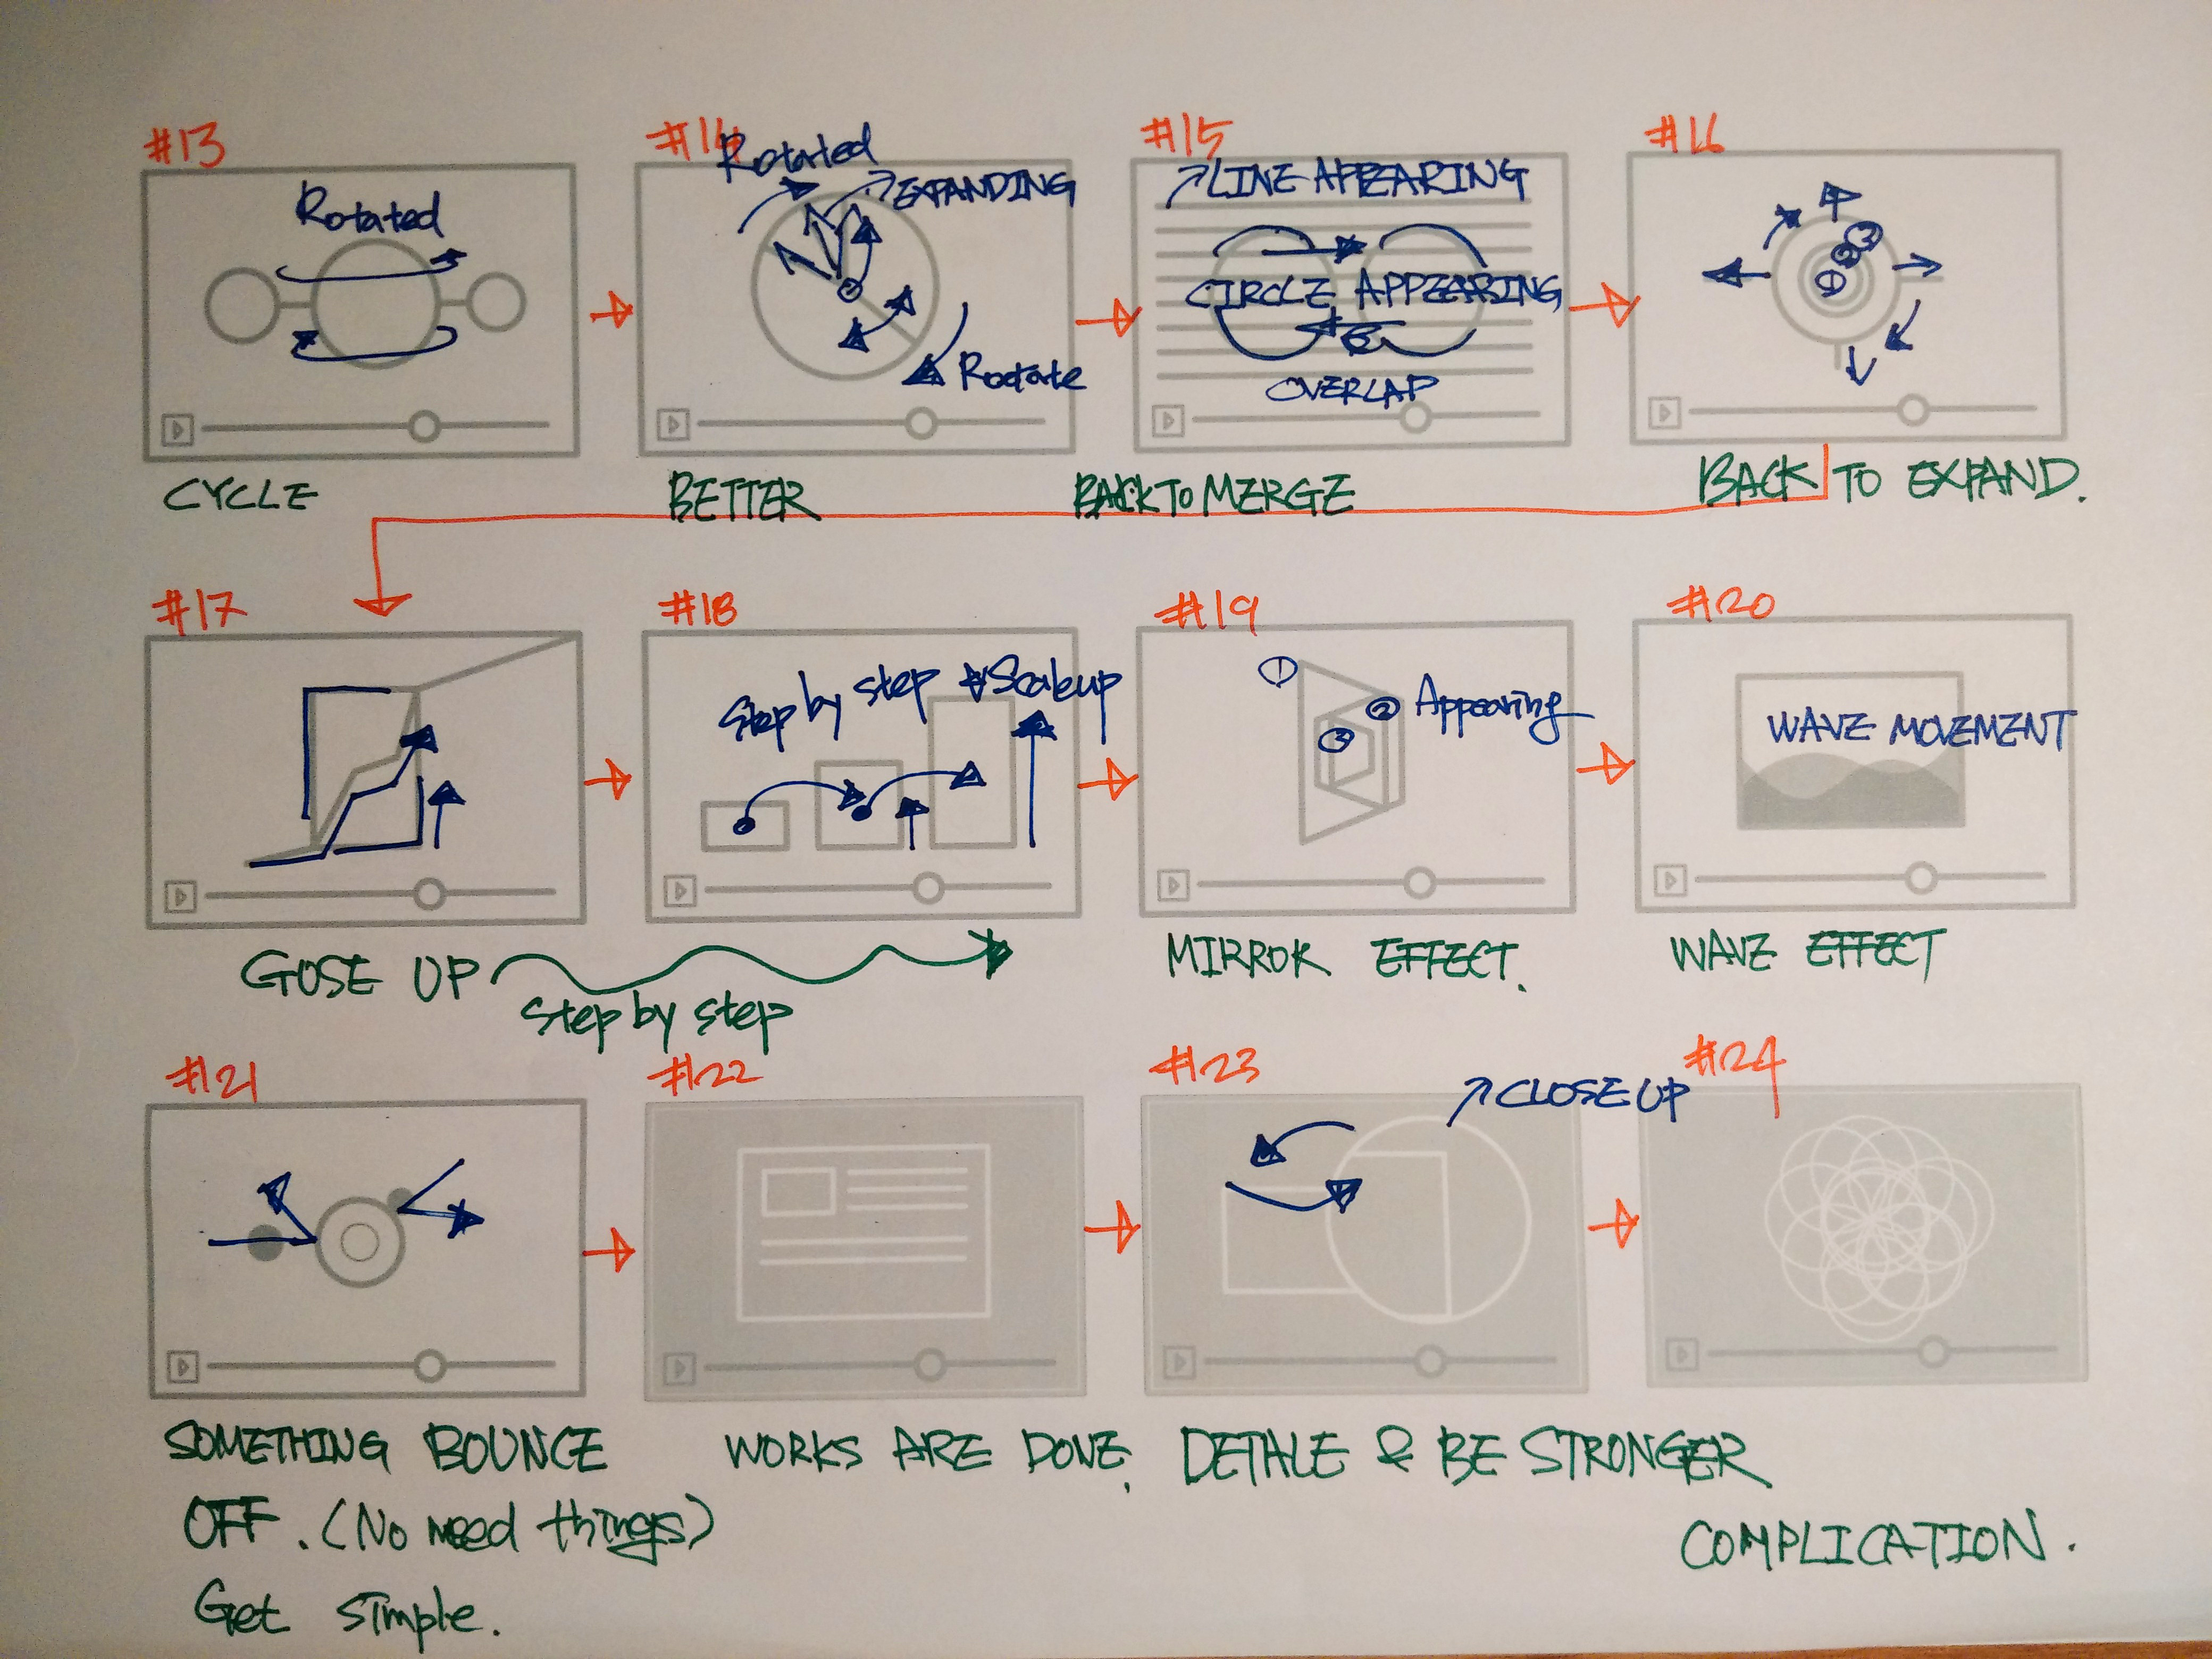 #13
Rotated
CYCLE
#14
Rotated
EXPANDING
Rootate
BETTER
#15
LINE APPEARING
CIRCLE APPEARING
OVERLAP
BACK TO MERGE
#16
3
2
1
BACK TO EXPAND.
#17
GOSE UP
#18
Step by step & Scaleup
Step by step
#19
1
2 Appearing
3
MIRROR EFFECT.
#20
WAVE MOVEMENT
WAVE EFFECT
#21
SOMETHING BOUNCE
OFF. (No need things)
Get simple.
#22
WORKS ARE DONE.
#23
CLOSE UP
DETALE & BE STRONGER
#24
COMPLICATION.